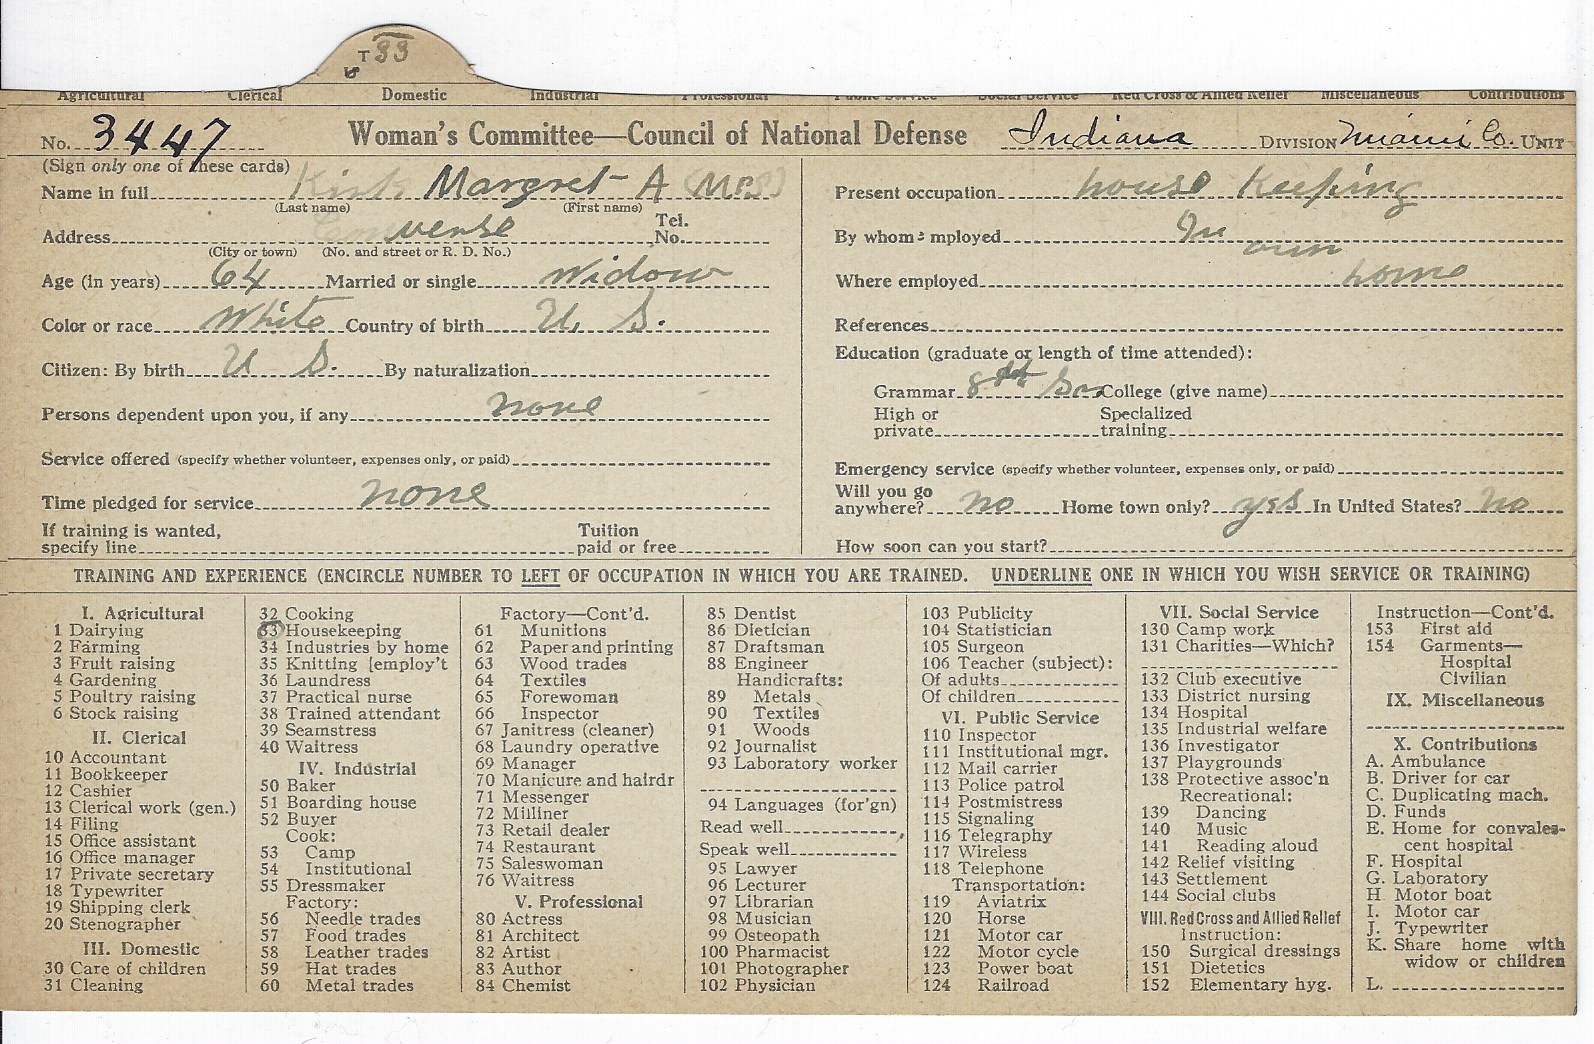 T 33
Agricultural Clerical Domestic Industrial Professional Public Service Social Service Red Cross & Allied Relief Miscellaneous Contributions
No. 3447 Woman's Committee—Council of National Defense Indiana DIVISION Miami Co. UNIT
(Sign only one of these cards)
Name in full Kirk Margret A (Mrs)
(Last name) (First name)
Address Converse Tel. No.
(City or town) (No. and street or R. D. No.)
Age (in years) 64 Married or single Widow
Color or race White Country of birth U. S.
Citizen: By birth U S. By naturalization
Persons dependent upon you, if any none
Service offered (specify whether volunteer, expenses only, or paid)
Time pledged for service none
If training is wanted, specify line Tuition paid or free
Present occupation house Keeping
By whom mployed In own
Where employed home
References
Education (graduate or length of time attended):
Grammar 8th College (give name)
High or private Specialized training
Emergency service (specify whether volunteer, expenses only, or paid)
Will you go anywhere? no Home town only? yes In United States? no
How soon can you start?
TRAINING AND EXPERIENCE (ENCIRCLE NUMBER TO LEFT OF OCCUPATION IN WHICH YOU ARE TRAINED. UNDERLINE ONE IN WHICH YOU WISH SERVICE OR TRAINING)
I. Agricultural
1 Dairying
2 Farming
3 Fruit raising
4 Gardening
5 Poultry raising
6 Stock raising
II. Clerical
10 Accountant
11 Bookkeeper
12 Cashier
13 Clerical work (gen.)
14 Filing
15 Office assistant
16 Office manager
17 Private secretary
18 Typewriter
19 Shipping clerk
20 Stenographer
III. Domestic
30 Care of children
31 Cleaning
32 Cooking
33 Housekeeping
34 Industries by home
35 Knitting [employ't
36 Laundress
37 Practical nurse
38 Trained attendant
39 Seamstress
40 Waitress
IV. Industrial
50 Baker
51 Boarding house
52 Buyer
Cook:
53 Camp
54 Institutional
55 Dressmaker
Factory:
56 Needle trades
57 Food trades
58 Leather trades
59 Hat trades
60 Metal trades
Factory—Cont'd.
61 Munitions
62 Paper and printing
63 Wood trades
64 Textiles
65 Forewoman
66 Inspector
67 Janitress (cleaner)
68 Laundry operative
69 Manager
70 Manicure and hairdr
71 Messenger
72 Milliner
73 Retail dealer
74 Restaurant
75 Saleswoman
76 Waitress
V. Professional
80 Actress
81 Architect
82 Artist
83 Author
84 Chemist
85 Dentist
86 Dietician
87 Draftsman
88 Engineer
Handicrafts:
89 Metals
90 Textiles
91 Woods
92 Journalist
93 Laboratory worker
94 Languages (for'gn)
Read well
Speak well
95 Lawyer
96 Lecturer
97 Librarian
98 Musician
99 Osteopath
100 Pharmacist
101 Photographer
102 Physician
103 Publicity
104 Statistician
105 Surgeon
106 Teacher (subject):
Of adults
Of children
VI. Public Service
110 Inspector
111 Institutional mgr.
112 Mail carrier
113 Police patrol
114 Postmistress
115 Signaling
116 Telegraphy
117 Wireless
118 Telephone
Transportation:
119 Aviatrix
120 Horse
121 Motor car
122 Motor cycle
123 Power boat
124 Railroad
VII. Social Service
130 Camp work
131 Charities—Which?
132 Club executive
133 District nursing
134 Hospital
135 Industrial welfare
136 Investigator
137 Playgrounds
138 Protective assoc'n
Recreational:
139 Dancing
140 Music
141 Reading aloud
142 Relief visiting
143 Settlement
144 Social clubs
VIII. Red Cross and Allied Relief
Instruction:
150 Surgical dressings
151 Dietetics
152 Elementary hyg.
Instruction—Cont'd.
153 First aid
154 Garments—
Hospital
Civilian
IX. Miscellaneous
X. Contributions
A. Ambulance
B. Driver for car
C. Duplicating mach.
D. Funds
E. Home for convales-
cent hospital
F. Hospital
G. Laboratory
H. Motor boat
I. Motor car
J. Typewriter
K. Share home with
widow or children
L.